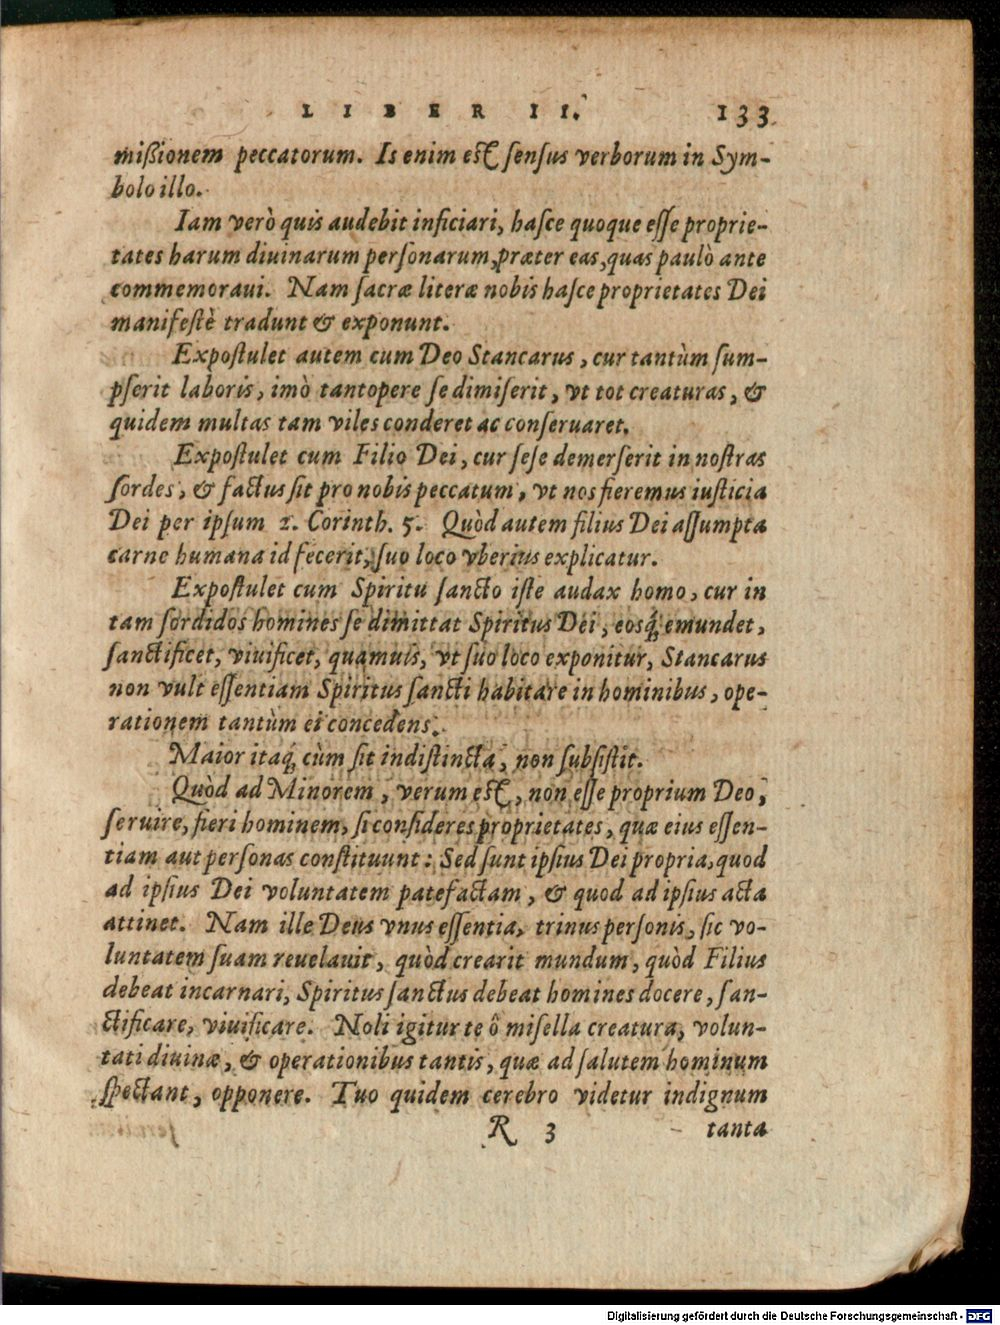 LIBER II. 133
mißionem peccatorum. Is enim est sensus verborum in Sym-
bolo illo.
Iam verò quis audebit inficiari, hasce quoque esse proprie-
tates harum diuinarum personarum, præter eas, quas paulò ante
commemoraui. Nam sacræ literæ nobis hasce proprietates Dei
manifestè tradunt & exponunt.
Expostulet autem cum Deo Stancarus, cur tantùm sum-
pserit laboris, imò tantopere se dimiserit, vt tot creaturas, &
quidem multas tam viles conderet ac conseruaret.
Expostulet cum Filio Dei, cur sese demerserit in nostras
sordes, & factus sit pro nobis peccatum, vt nos fieremus iusticia
Dei per ipsum 2. Corinth. 5. Quòd autem filius Dei assumpta
carne humana id fecerit, suo loco vberius explicatur.
Expostulet cum Spiritu sancto iste audax homo, cur in
tam sordidos homines se dimittat Spiritus Dei, eosq́; emundet,
sanctificet, viuificet, quamuis, vt suo loco exponitur, Stancarus
non vult essentiam Spiritus sancti habitare in hominibus, ope-
rationem tantùm ei concedens.
Maior itaq́; cùm sit indistincta, non subsistit.
Quòd ad Minorem, verum est, non esse proprium Deo,
seruire, fieri hominem, si consideres proprietates, quæ eius essen-
tiam aut personas constituunt: Sed sunt ipsius Dei propria, quod
ad ipsius Dei voluntatem patefactam, & quod ad ipsius acta
attinet. Nam ille Deus vnus essentia, trinus personis, sic vo-
luntatem suam reuelauit, quòd crearit mundum, quòd Filius
debeat incarnari, Spiritus sanctus debeat homines docere, san-
ctificare, viuificare. Noli igitur te ô misella creatura, volun-
tati diuinæ, & operationibus tantis, quæ ad salutem hominum
spectant, opponere. Tuo quidem cerebro videtur indignum
R 3 tanta
Digitalisierung gefördert durch die Deutsche Forschungsgemeinschaft - DFG